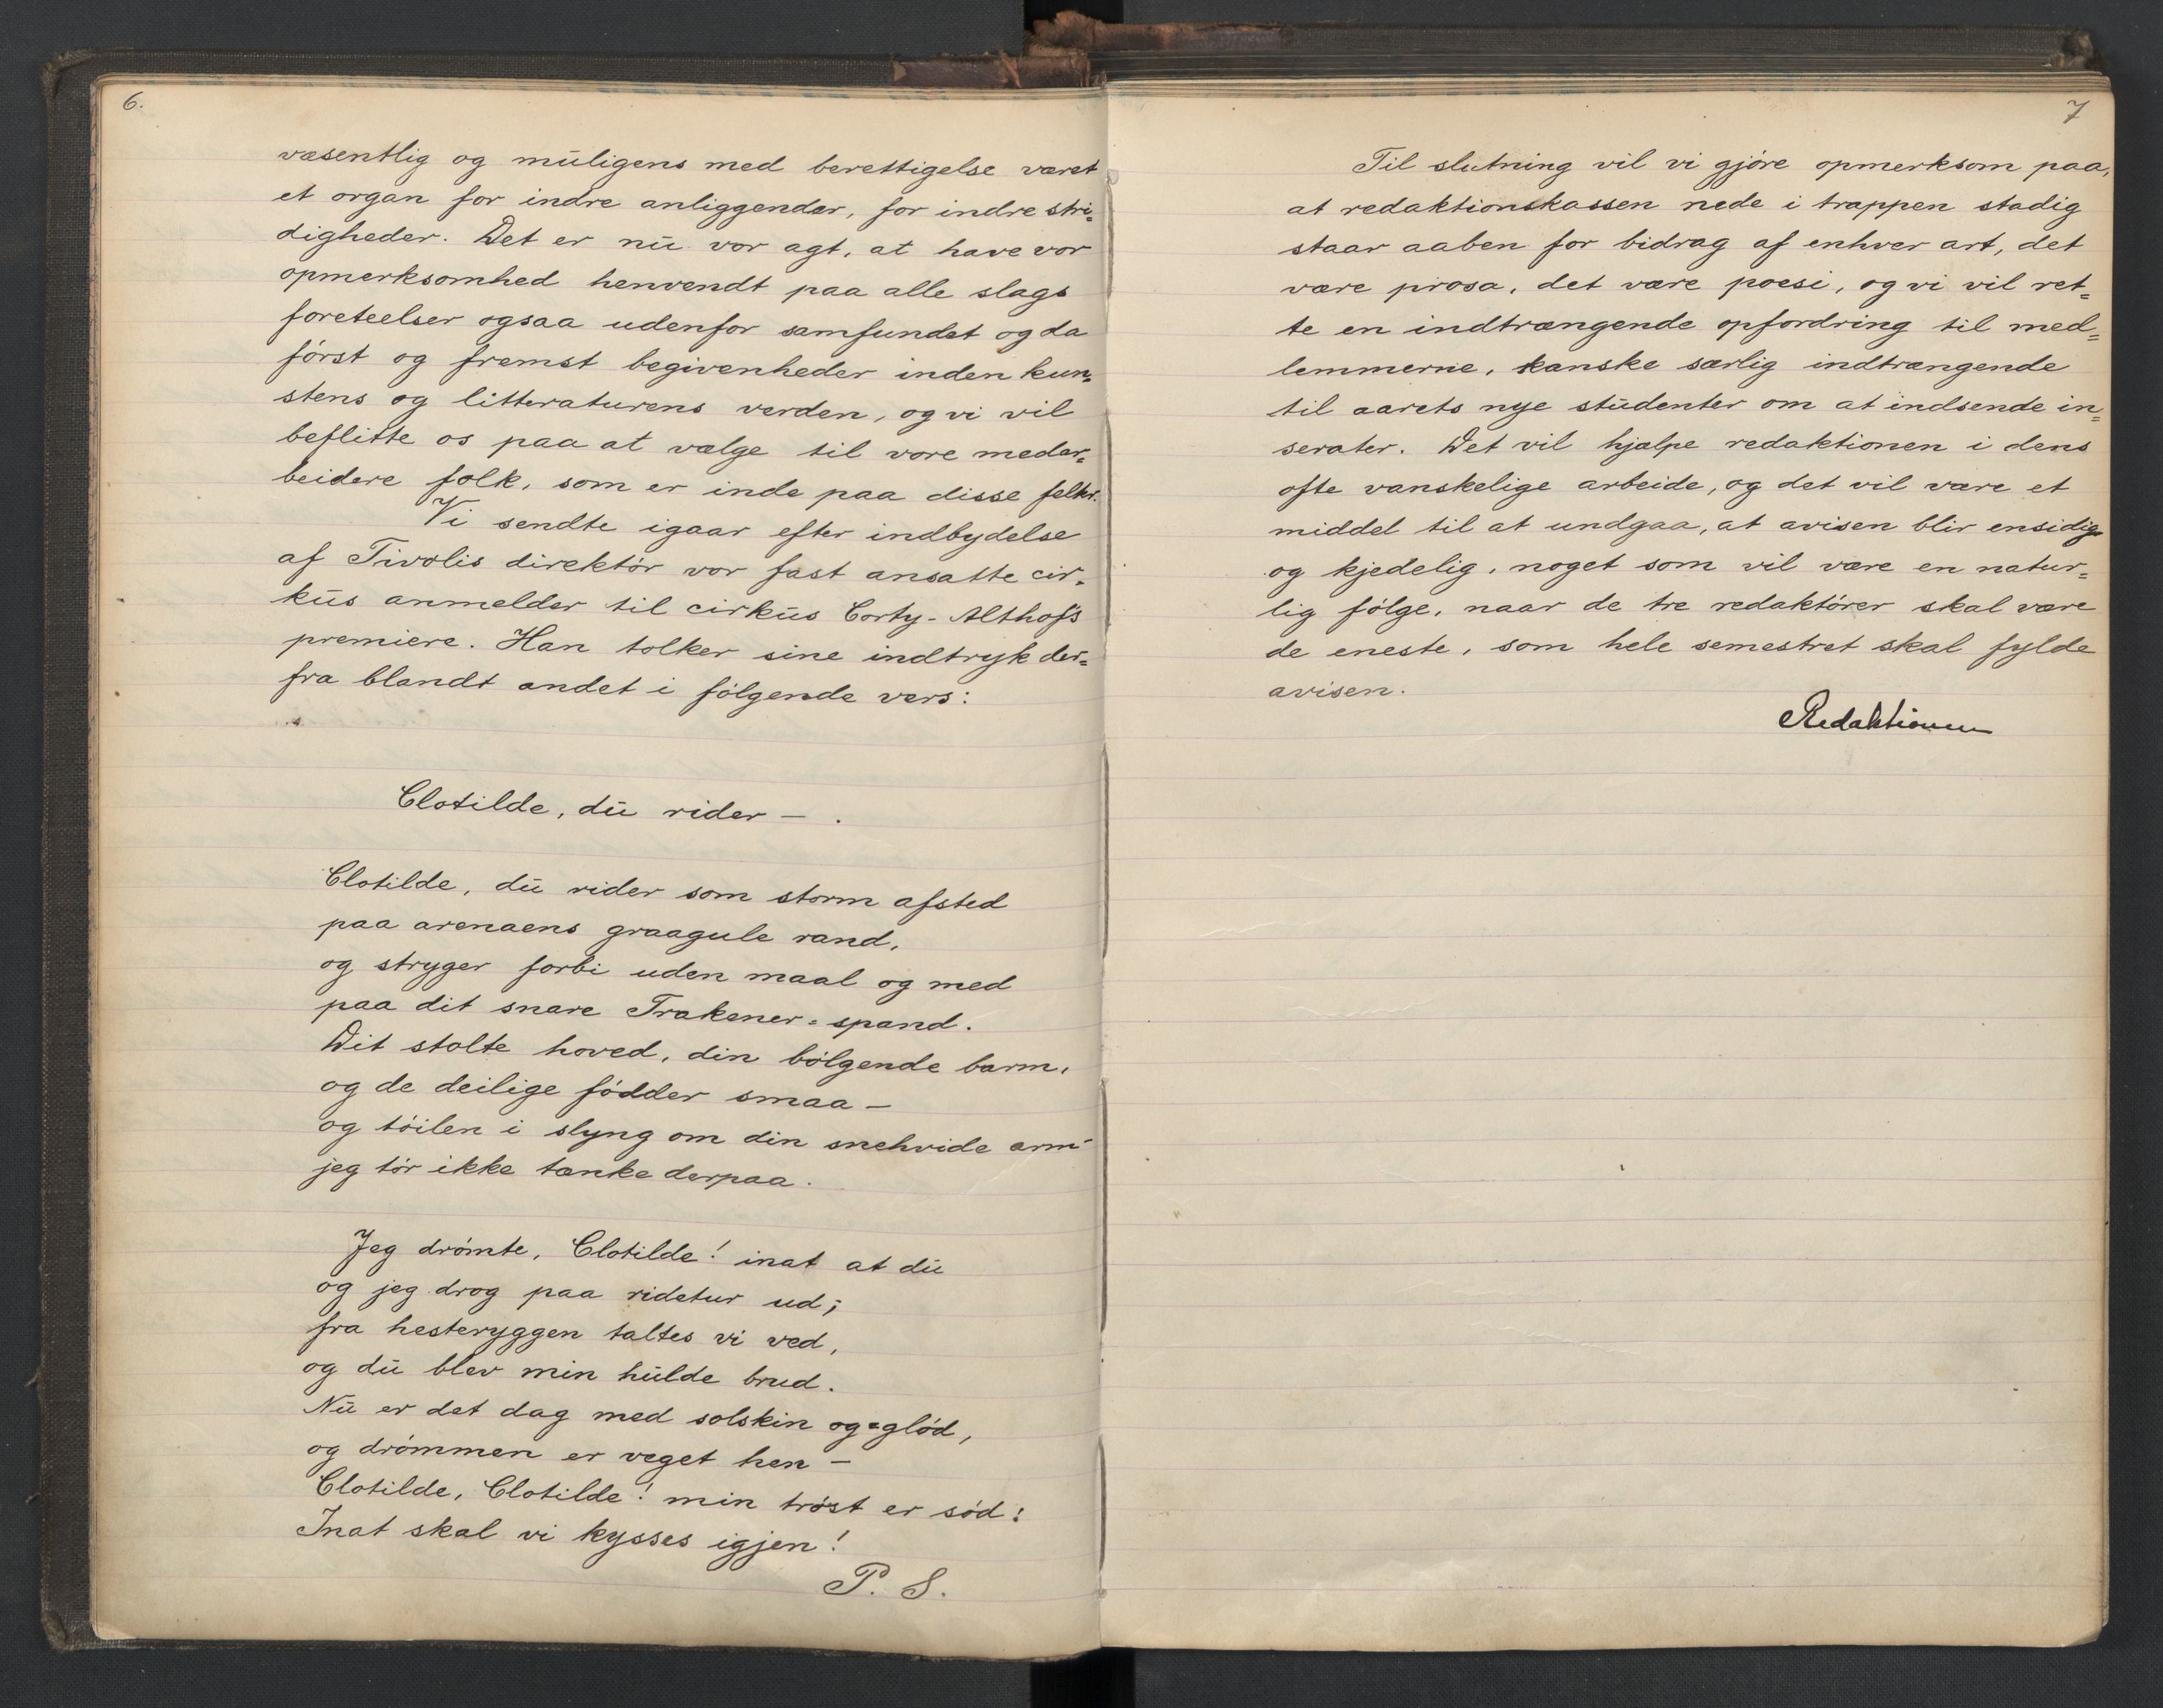 6.
væsentlig og muligens med berettigelse været
et organ for indre anliggender, for indre stri=
digheder. Det er nu vor agt, at have vor
opmerksomhed henvendt paa alle slags
foreteelser ogsaa udenfor samfundet og da
først og fremst begivenheder inden kun=
stens og litteraturens verden, og vi vil
beflitte os paa at vælge til vore medar=
beidere folk, som er inde paa disse felter.
Vi sendte igaar efter indbydelse
af Tivolis direktør vor fast ansatte cir=
kus anmelder til cirkus Corty-Althofs
premiere. Han tolker sine indtryk der=
fra blandt andet i følgende vers:
Clotilde, du rider — .
Clotilde, du rider som storm afsted
paa arenaens graagule rand,
og stryger forbi uden maal og med
paa dit snare Trakener=spand.
Dit stolte hoved, din bølgende barm,
og de deilige fødder smaa —
og tøilen i slyng om din snehvide arm —
jeg tør ikke tænke derpaa.
Jeg drømte, Clotilde! inat at du
og jeg drog paa ridetur ud;
fra hesteryggen taltes vi ved,
og du blev min hulde brud.
Nu er det dag med solskin og glød,
og drømmen er veget hen —
Clotilde, Clotilde! min trøst er sød:
Inat skal vi kysses igjen!
P. S.
7
Til slutning vil vi gjøre opmerksom paa,
at redaktionskassen nede i trappen stadig
staar aaben for bidrag af enhver art, det
være prosa, det være poesi, og vi vil ret=
te en indtrængende opfordring til med=
lemmerne, kanske særlig indtrængende
til aarets nye studenter om at indsende in=
serater. Det vil hjælpe redaktionen i dens
ofte vanskelige arbeide, og det vil være et
middel til at undgaa, at avisen blir ensidig
og kjedelig, noget som vil være en natur=
lig følge, naar de tre redaktører skal være
de eneste, som hele semestret skal fylde
avisen.
Redaktionen